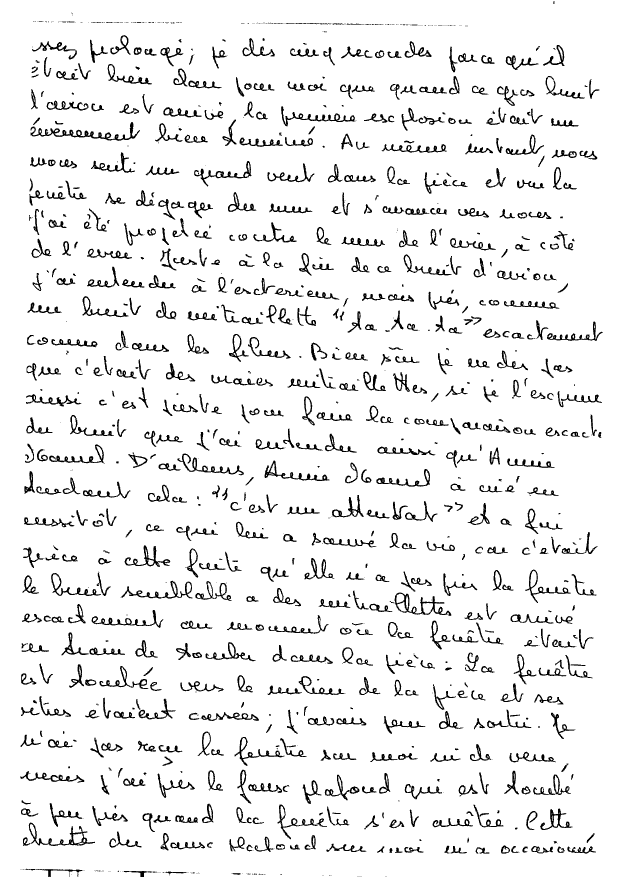 ssez prolongé; je dis cinq secondes parce qu'il
était bien clair pour moi que quand ce gros bruit
l'avion est arrivé, la première esplosion était un
évènement bien terminé. Au même instant, nous
avons senti un grand vent dans la pièce et vu la
fenêtre se dégager du mur et s'avancer vers nous.
J'ai été projeté contre le mur de l'evier, à côté
de l'evier. Juste à la fin de ce bruit d'avion,
j'ai entendu à l'exterieur, mais près, comme
un bruit de mitraillette "ta.ta.ta" escactement
comme dans les films. Bien sûr je ne dis pas
que c'etait des vraies mitraillettes, si je l'esprime
ainsi c'est juste pour faire la comparaison escacte
du bruit que j'ai entendu ainsi qu'Annie
. D'ailleurs, Annie à crié en
tendant cela: "c'est un attentat" et a fui
aussitôt, ce qui lui a sauvé la vie, car c'etait
grâce à cette fuite qu'elle n'a pas pris la fenêtre
le bruit semblable a des mitraillettes est arrivé
escactement au moment où la fenêtre était
en train de tomber dans la pièce: La fenêtre
est tombée vers le milieu de la pièce et ses
vitres étaient cassées; j'avais peur de sortir. Je
n'ai pas reçu la fenêtre sur moi ni de verre,
mais j'ai pris le faux plafond qui est tombé
à peu près quand la fenêtre s'est arrêtée. Cette
chute du faux plafond sur moi m'a occasionné